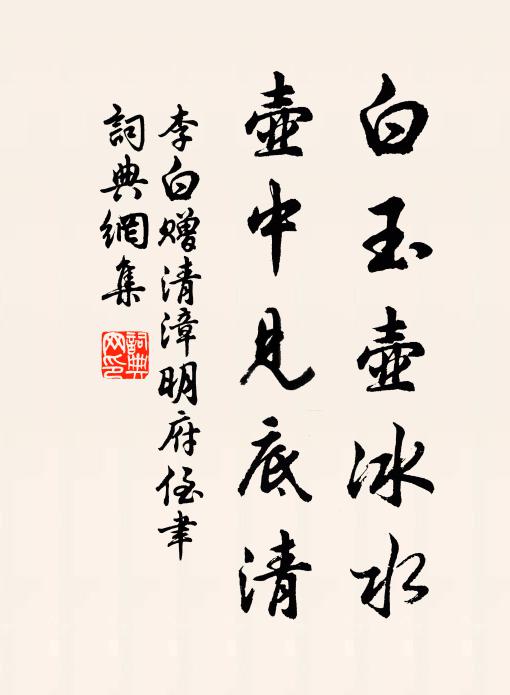 白玉壺冰水
壺中見底清
李白赠清漳明府侄聿
詞典網集
詞典网印